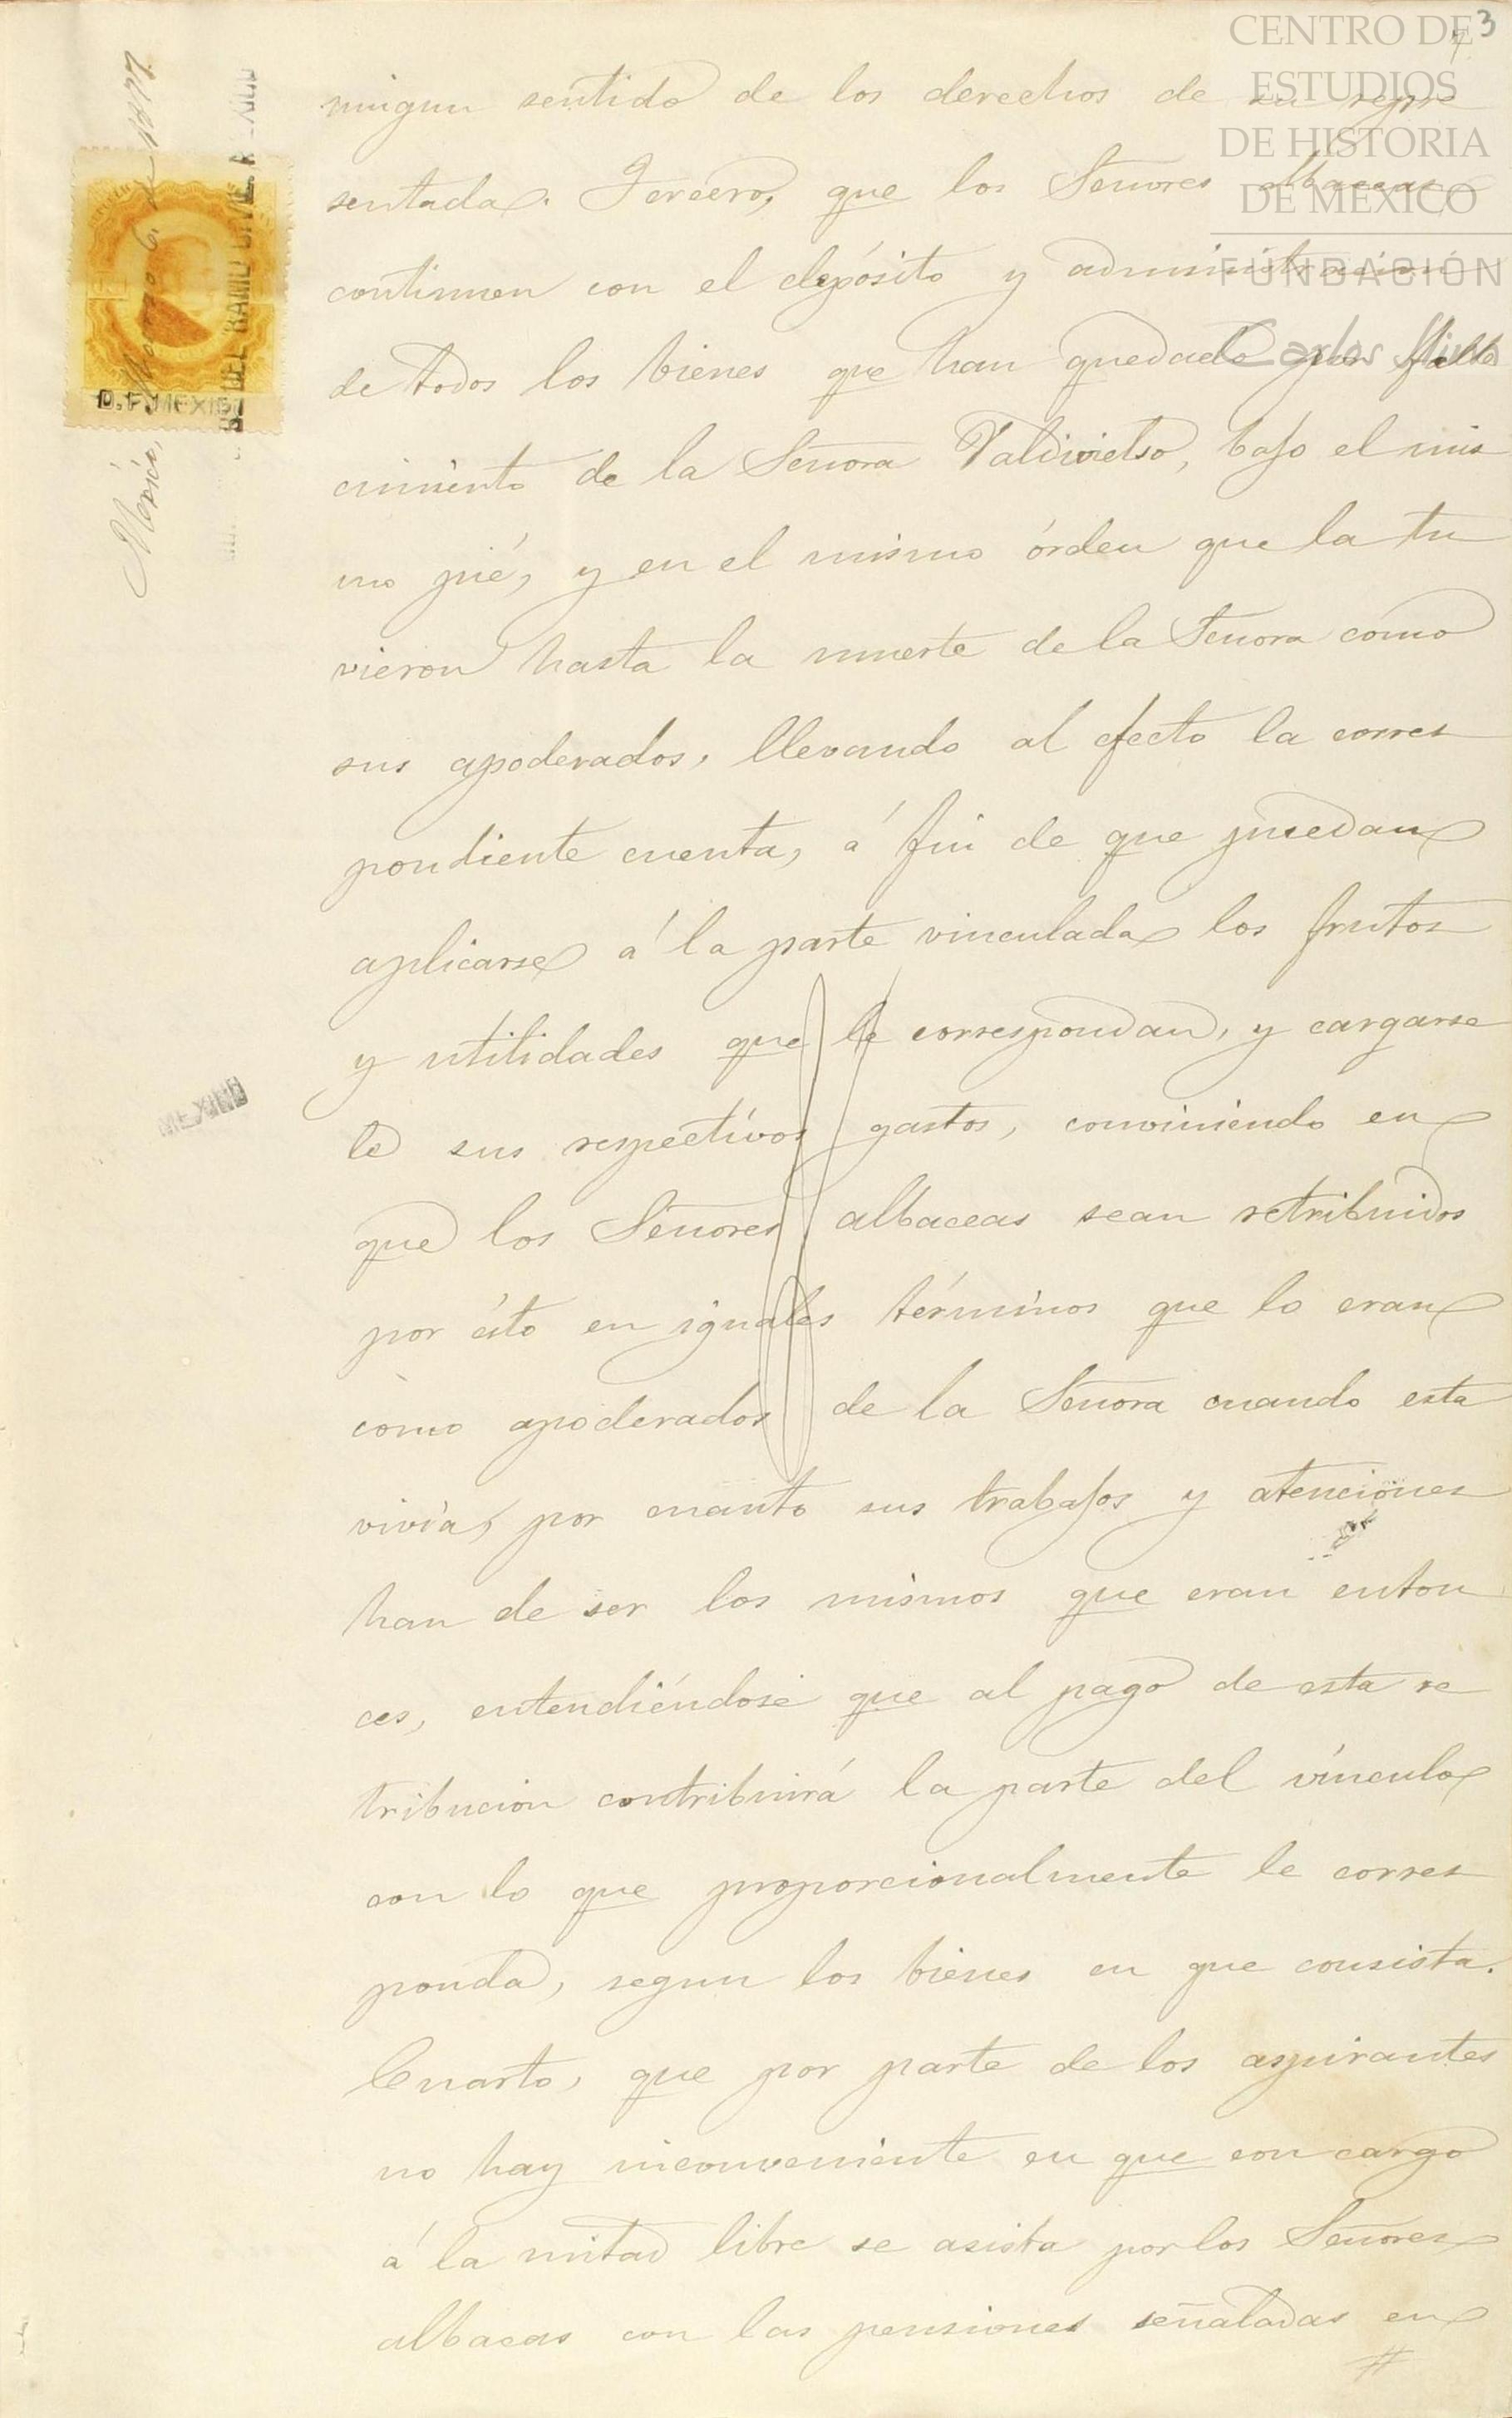 3
CENTRO DE
ESTUDIOS
DE HISTORIA
DE MÉXICO
FUNDACIÓN
Carlos Slim
México, Marzo 6 de 1877.
D.F. MEXICO
MEXICO
ningun sentido de los derechos de su repre
sentada. Tercero, que los Señores albaceas
continuen con el depósito y administracion
de todos los bienes que han quedado por falle
cimiento de la Señora Valdivielso, bajo el mis
mo pié, y en el mismo órden que la tu
vieron hasta la muerte de la Señora como
sus apoderados, llevando al efecto la corres
pondiente cuenta, á fin de que puedan
aplicarse á la parte vinculada los frutos
y utilidades que le correspondan, y cargarse
le sus respectivos gastos, conviniendo en
que los Señores albaceas sean retribuidos
por ésto en iguales términos que lo eran
como apoderados de la Señora cuando esta
vivía, por cuanto sus trabajos y atenciones
han de ser los mismos que eran enton
ces, entendiéndose que al pago de esta re
tribucion contribuirá la parte del vínculo
con lo que proporcionalmente le corres
ponda, segun los bienes en que consista.
Cuarto, que por parte de los aspirantes
no hay inconveniente en que con cargo
á la mitad libre se asista por los Señores
albaceas con las pensiones señaladas en